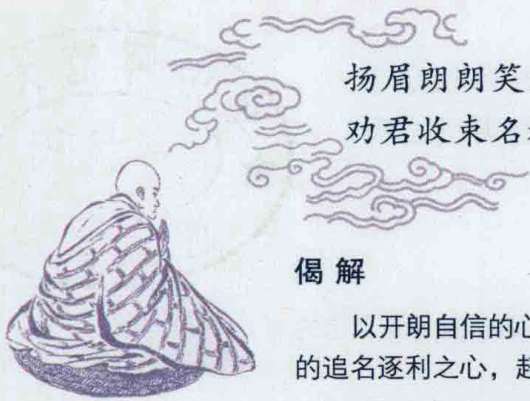 扬眉朗朗笑
劝君收束名
偈解
以开朗自信的心
的追名逐利之心，超